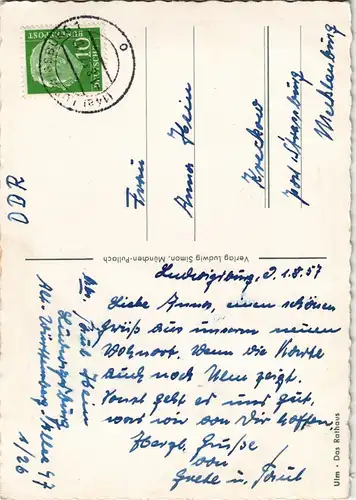 Ludwigsburg, d. 1.8.57
Liebe Anna, einen schönen
Gruß aus unserem neuen
Wohnort. Wenn die Karte
auch noch Ulm zeigt.
Sonst geht es uns gut,
was wir von Dir hoffen.
Herzl. Grüße
von
Grete u.
Abs.
Ludwigsburg
Alt-Württemberg 47
1/26
Frau
Anna Hein
Kreckow
post Strasburg
Mecklenburg
DDR
Verlag Ludwig Simon, München-Pullach
Ulm · Das Rathaus
10
DEUTSCHE
BUNDESPOST